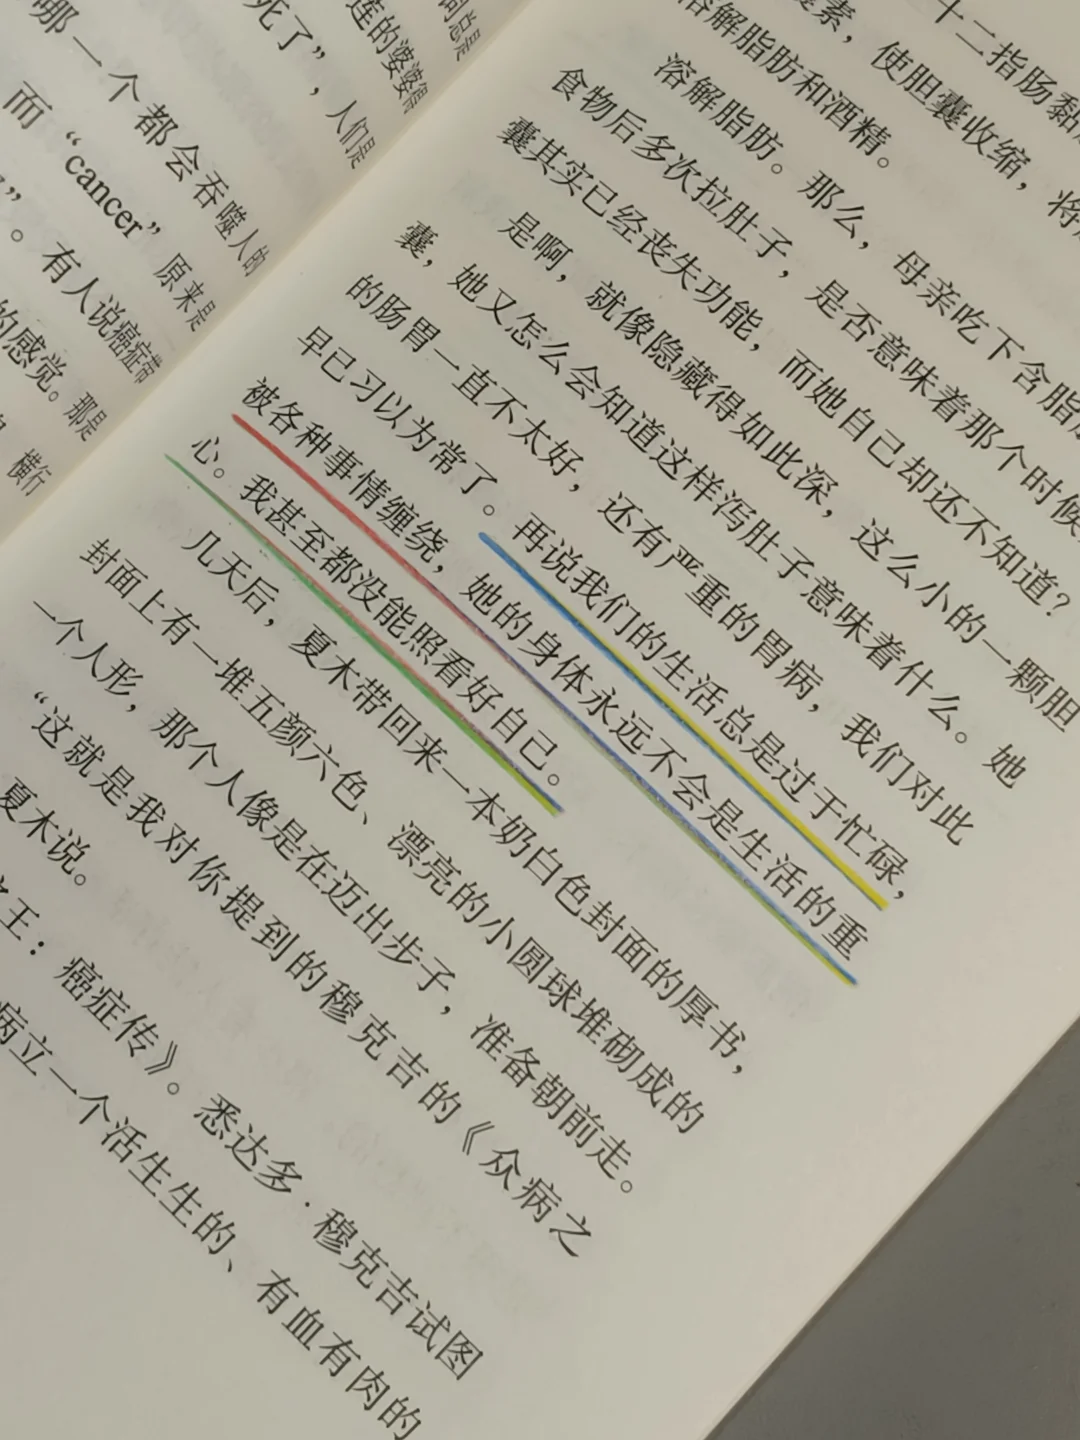 词总是
莲的婆婆得
死了”，人们是
哪一个都会吞噬人的
而“cancer”原来是
”。有人说癌症带
的感觉。那是
横行
十二指肠黏
素，使胆囊收缩，将
溶解脂肪和酒精。
溶解脂肪。那么，母亲吃下含脂
食物后多次拉肚子，是否意味着那个时候
囊其实已经丧失功能，而她自己却还不知道？
是啊，就像隐藏得如此深，这么小的一颗胆
囊，她又怎么会知道这样泻肚子意味着什么。她
的肠胃一直不太好，还有严重的胃病，我们对此
早已习以为常了。再说我们的生活总是过于忙碌，
被各种事情缠绕，她的身体永远不会是生活的重
心。我甚至都没能照看好自己。
几天后，夏木带回来一本奶白色封面的厚书，
封面上有一堆五颜六色、漂亮的小圆球堆砌成的
一个人形，那个人像是在迈出步子，准备朝前走。
“这就是我对你提到的穆克吉的《众病之
夏木说。
之王：癌症传》。悉达多·穆克吉试图
病立一个活生生的、有血有肉的